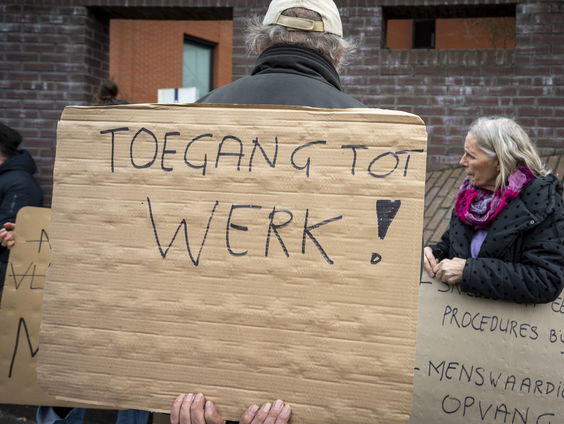 TOEGANG TOT
WERK!
PROCEDURES
- MENSWAARDI
OPVANG